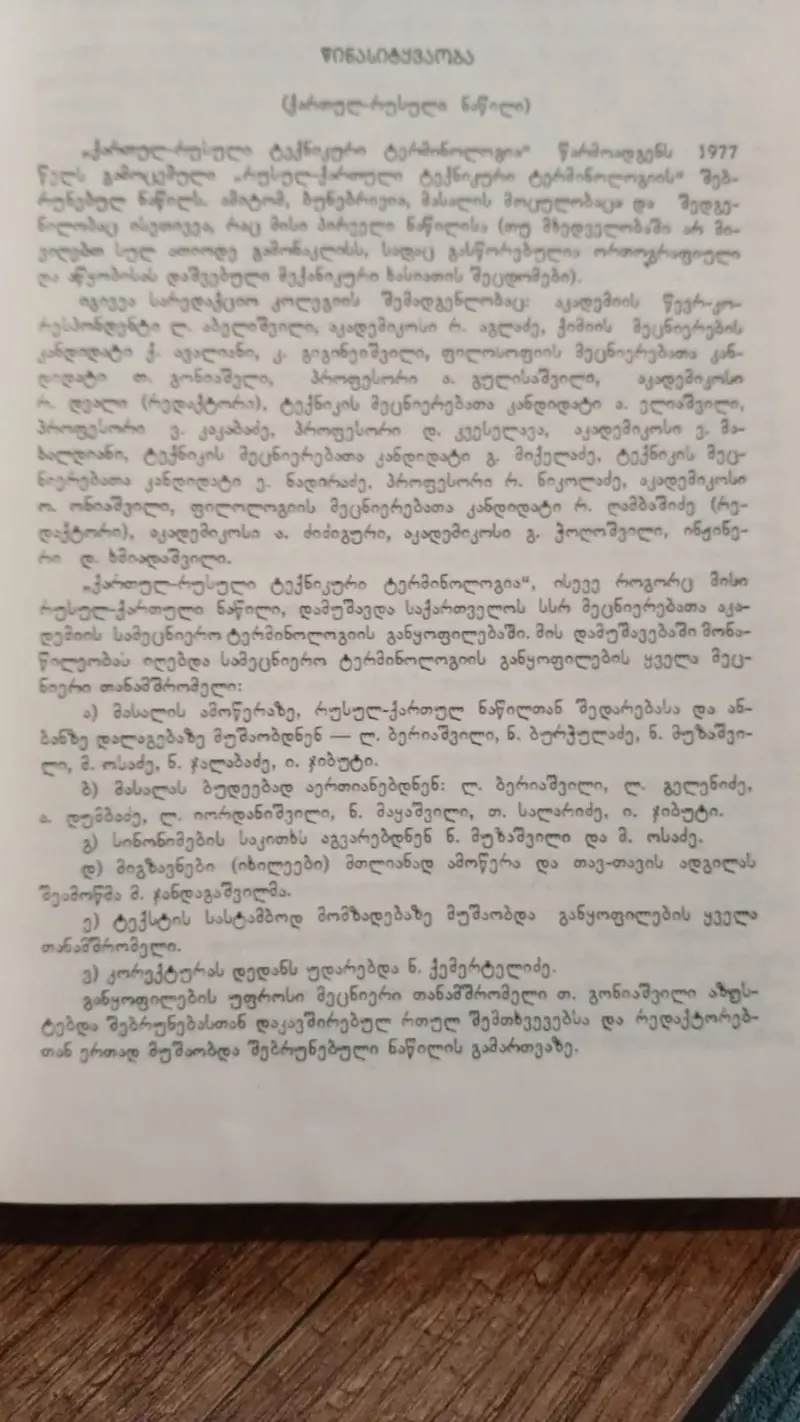 წინასიტყვაობა
(ქართულ-რუსული ნაწილი)
„ქართულ-რუსული ტექნიკური ტერმინოლოგია“ წარმოადგენს 1977
წელს გამოცემული „რუსულ-ქართული ტექნიკური ტერმინოლოგიის“ შებ-
რუნებულ ნაწილს. ამიტომ, ბუნებრივია, მასალის მოცულობაცა და შედგე-
ნილობაც ისეთივეა, რაც მისი პირველი ნაწილისა (თუ მხედველობაში არ მი-
ვიღებთ სულ ათიოდე გამონაკლისს, სადაც გასწორებულია ორთოგრაფიული
და აწყობისას დაშვებული მექანიკური ხასიათის შეცდომები).
იგივეა სარედაქციო კოლეგიის შემადგენლობაც: აკადემიის წევრ-კო-
რესპონდენტი ლ. აბელიშვილი, აკადემიკოსი რ. აგლაძე, ქიმიის მეცნიერების
კანდიდატი ქ. ავალიანი, კ. გიგინეიშვილი, ფილოსოფიის მეცნიერებათა კან-
დიდატი თ. გონიაშვილი, პროფესორი ა. გულისაშვილი, აკადემიკოსი
რ. დვალი (რედაქტორი), ტექნიკის მეცნიერებათა კანდიდატი ა. ელიაშვილი,
პროფესორი ვ. კაკაბაძე, პროფესორი დ. კვესელავა, აკადემიკოსი ვ. მა-
ხალდიანი, ტექნიკის მეცნიერებათა კანდიდატი გ. მიქელაძე, ტექნიკის მეც-
ნიერებათა კანდიდატი ე. ნადირაძე, პროფესორი რ. ნიკოლაძე, აკადემიკოსი
ო. ონიაშვილი, ფილოლოგიის მეცნიერებათა კანდიდატი რ. ღამბაშიძე (რე-
დაქტორი), აკადემიკოსი ა. ძიძიგური, აკადემიკოსი გ. ჭოღოშვილი, ინჟინე-
რი დ. ხმიადაშვილი.
„ქართულ-რუსული ტექნიკური ტერმინოლოგია“, ისევე როგორც მისი
რუსულ-ქართული ნაწილი, დამუშავდა საქართველოს სსრ მეცნიერებათა აკა-
დემიის სამეცნიერო ტერმინოლოგიის განყოფილებაში. მის დამუშავებაში მონა-
წილეობას იღებდა სამეცნიერო ტერმინოლოგიის განყოფილების ყველა მეც-
ნიერი თანამშრომელი:
ა) მასალის ამოწერაზე, რუსულ-ქართულ ნაწილთან შედარებასა და ან-
ბანზე დალაგებაზე მუშაობდნენ — ლ. ბერიაშვილი, ნ. ბურჭულაძე, ნ. მუზაშვი-
ლი, მ. ოსაძე, ნ. ჯალაბაძე, ი. ჯიბუტი.
ბ) მასალას ბუდეებად აერთიანებდნენ: ლ. ბერიაშვილი, ლ. გელენიძე,
ა. დუმბაძე, ლ. იორდანიშვილი, ნ. მაყაშვილი, თ. სალარიძე, ი. ჯიბუტი.
გ) სინონიმების საკითხს აგვარებდნენ ნ. მუზაშვილი და მ. ოსაძე.
დ) მიგზავნები (იხილეები) მთლიანად ამოწერა და თავ-თავის ადგილას
შეამოწმა მ. ჯანდაგაშვილმა.
ე) ტექსტის სასტამბოდ მომზადებაზე მუშაობდა განყოფილების ყველა
თანამშრომელი.
ვ) კორექტურას დედანს უდარებდა ნ. ქემერტელიძე.
განყოფილების უფროსი მეცნიერი თანამშრომელი თ. გონიაშვილი აზუს-
ტებდა შებრუნებასთან დაკავშირებულ რთულ შემთხვევებსა და რედაქტორებ-
თან ერთად მუშაობდა შებრუნებული ნაწილის გამართვაზე.